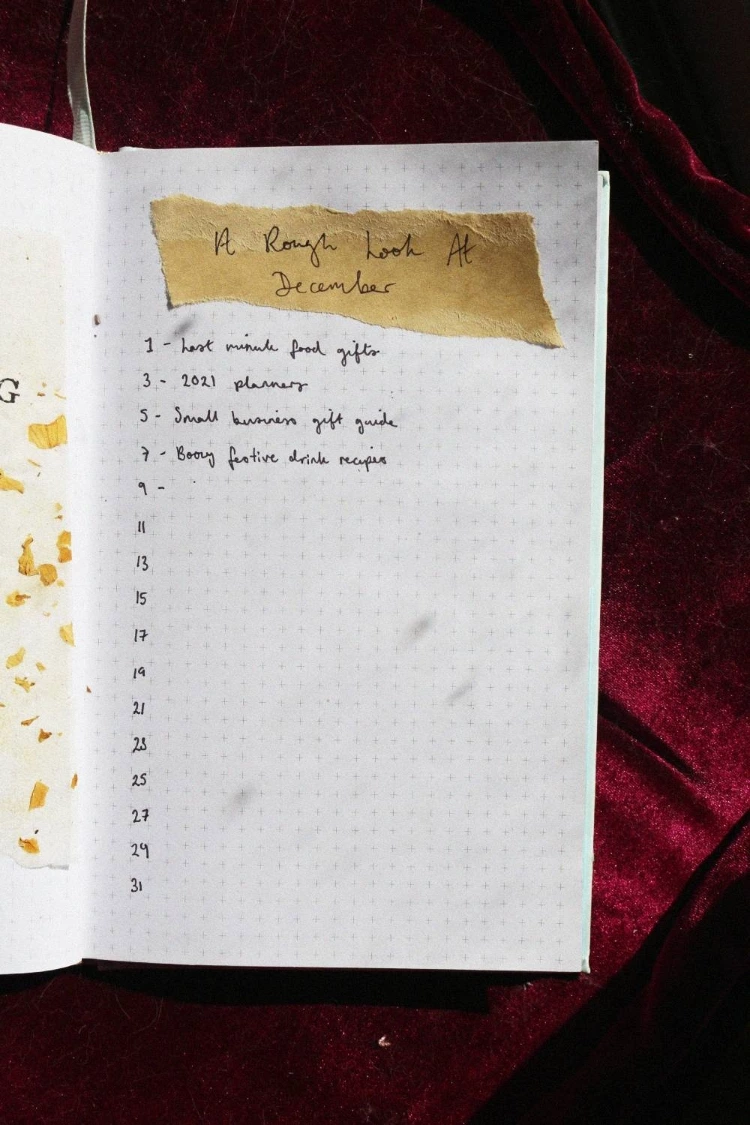 G
A Rough Look At
December
1 - Last minute food gifts
3 - 2021 planners
5 - Small business gift guide
7 - Boozy festive drink recipes
9 -
11
13
15
17
19
21
23
25
27
29
31